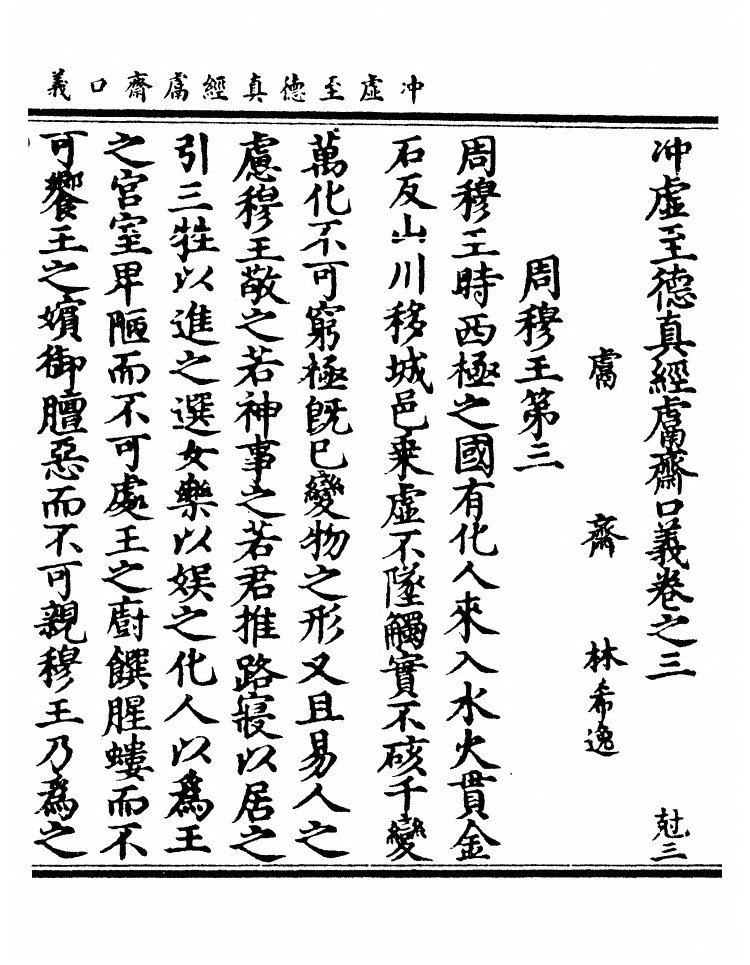 冲虛至德真經鬳齋口義
冲虛至德真經鬳齋口義卷之三
尅三
鬳齋林希逸
周穆王第三
周穆王時西極之國有化人來入水火貫金
石反山川移城邑乗虛不墜觸實不硋千變
萬化不可窮極旣已變物之形又且易人之
慮穆王敬之若神事之若君推路寢以居之
引三牲以進之選女樂以娱之化人以爲王
之宮室卑陋而不可處王之廚饌腥螻而不
可饗王之嬪御膻惡而不可親穆王乃爲之